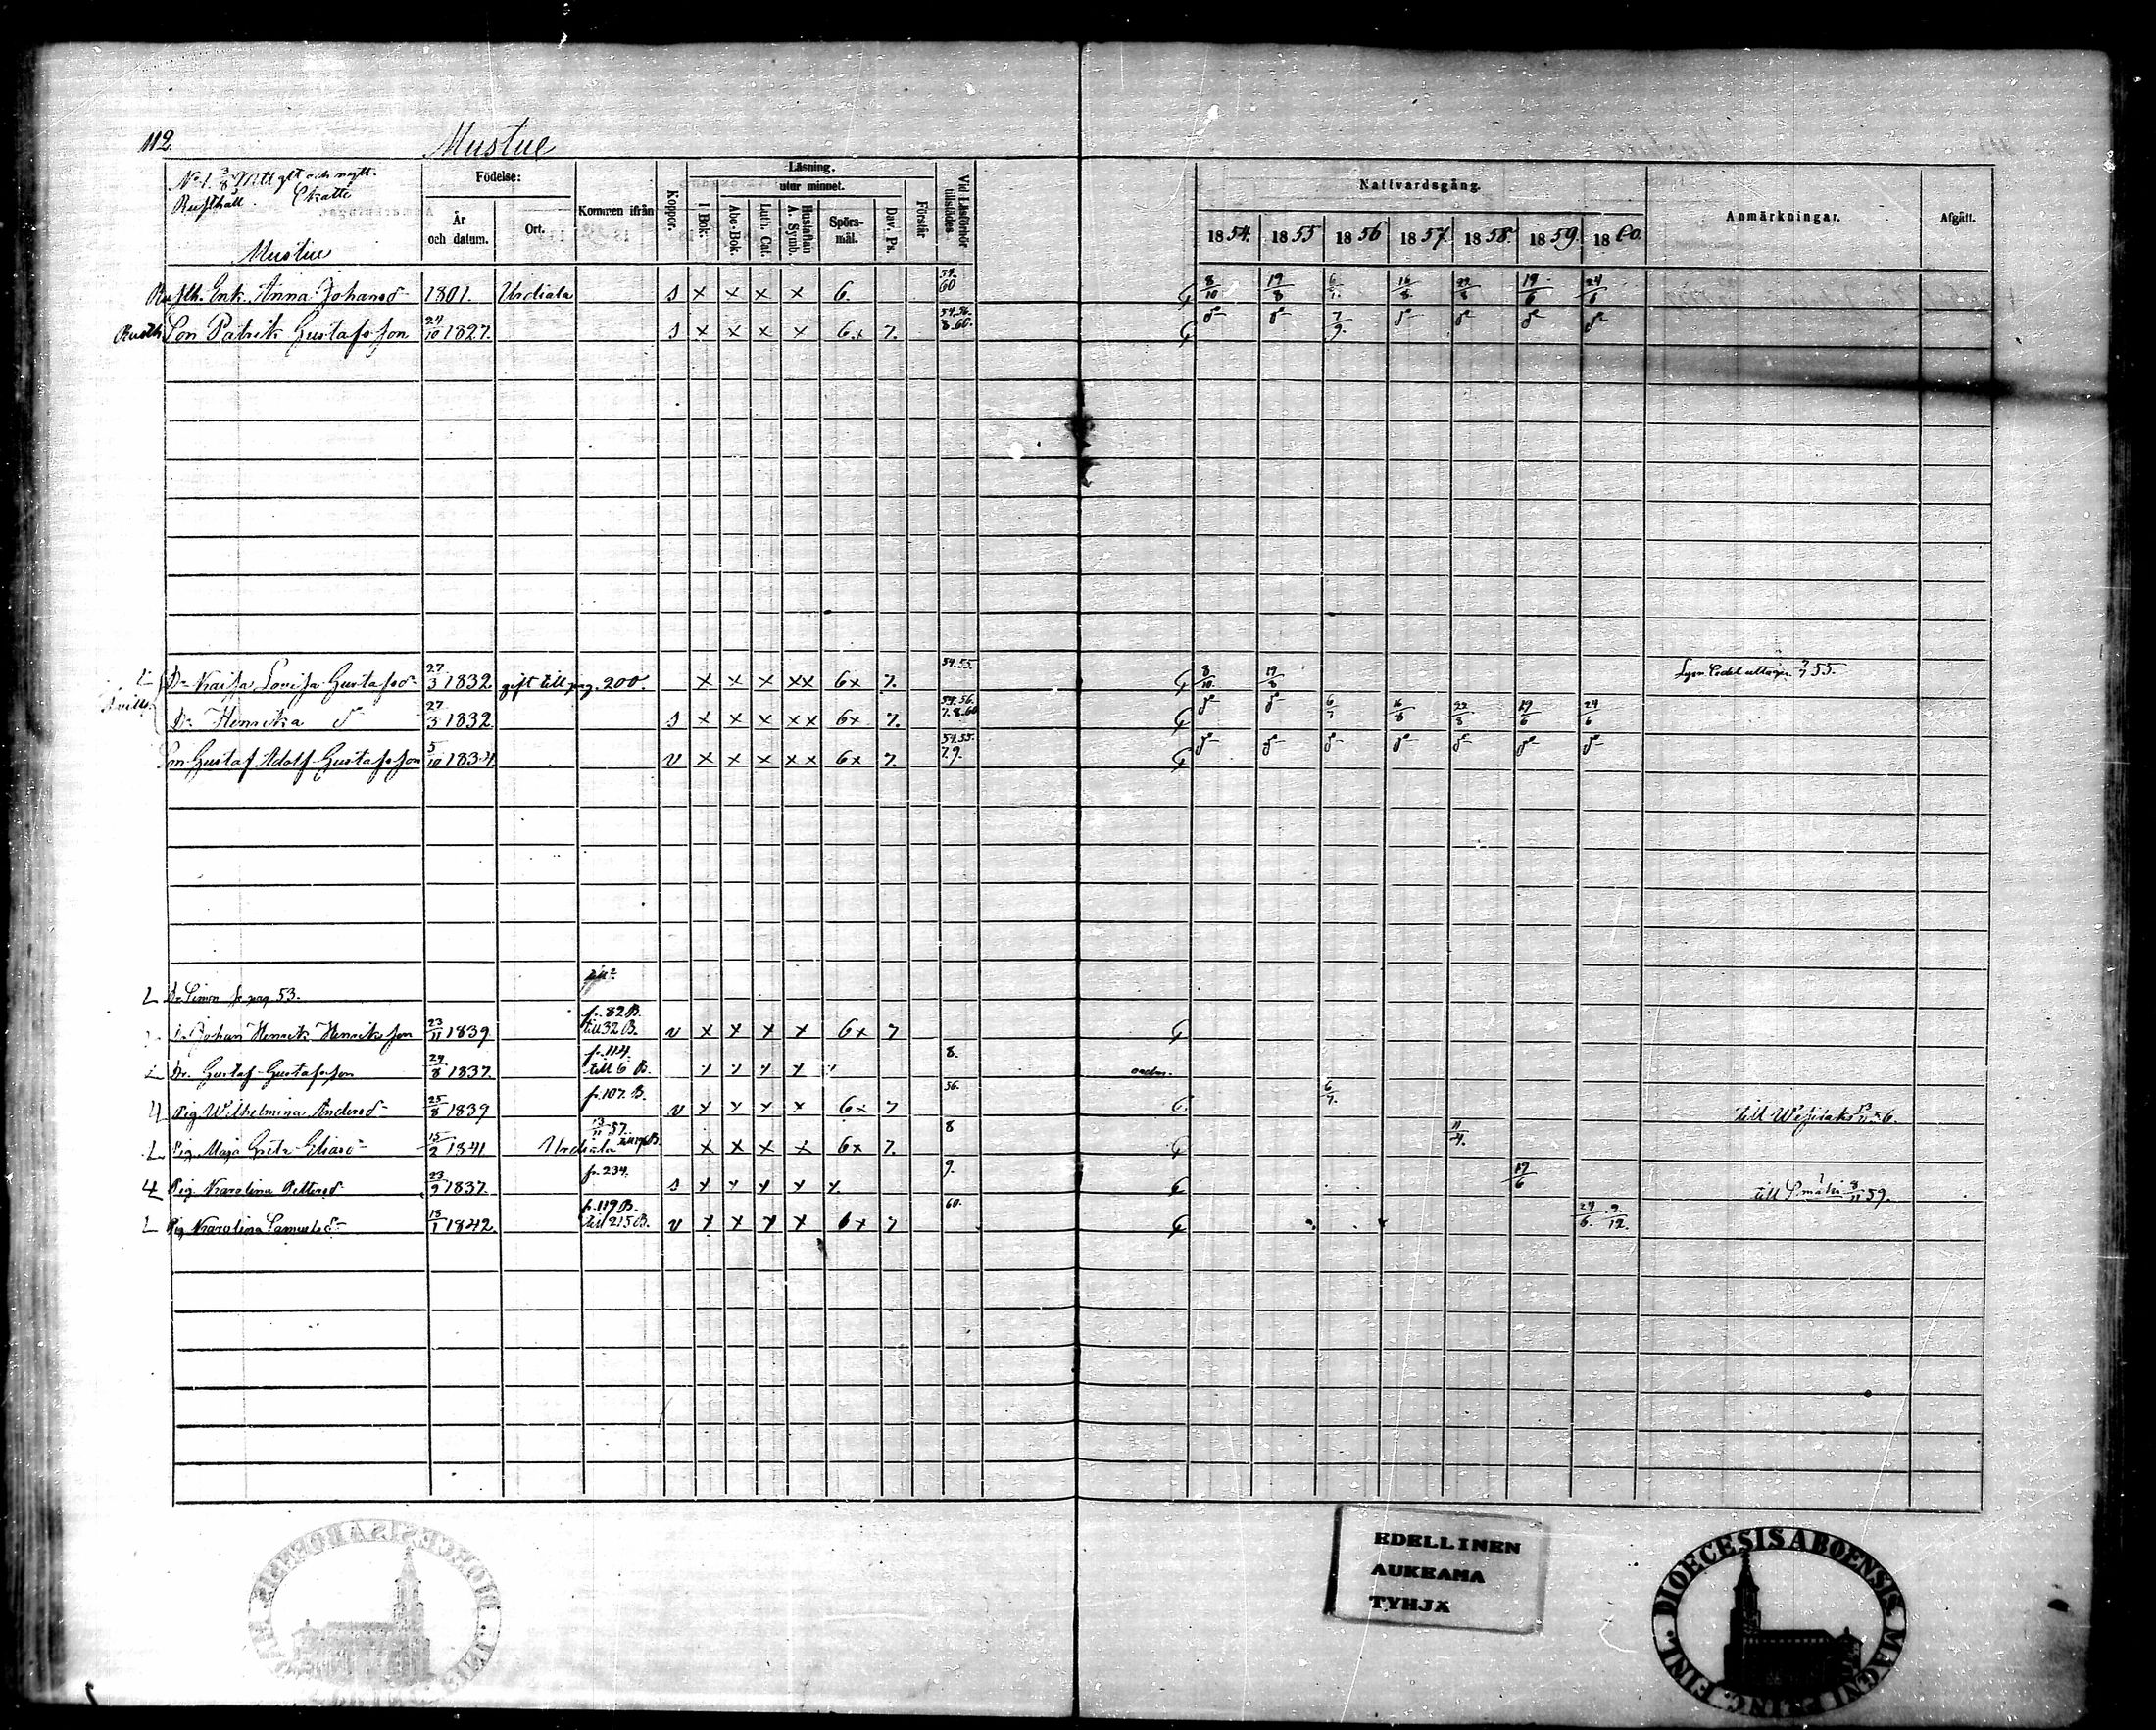 112.
Mustue
No 1. 3/8 Mtl glt och nytt.
Rusthåll. Skatte
Mustue
Födelse:
År och datum.
Ort.
Kommen ifrån
Koppor.
Läsning.
utur minnet.
I Bok.
Abc-Bok.
Luth. Cat.
Hustaflan A. Symb.
Spörs-mål.
Dav. Ps.
Förstår
Vid Läsförhör tillstädes
Nattvardsgång.
1854. 1855 1856 1857. 1858. 1859. 1860.
Anmärkningar.
Afgått.
Rusth. Enk. Anna Johansd- 1801. Urdiala s x x x x 6. 54. 60 8/10 19/8 6/7. 16/8. 22/8 19/6 24/6
Rusth. Son Patrik Gustafsson 24/10 1827. s x x x x 6x 7. 54.56. 8.60. do do 7/9. do do do do
Dr Kaisa Lovisa Gustafsd- 27/3 1832. gift till pag. 200. x x x xx 6x 7. 54.55. 8/10. 19/8 55.
Dr Henrika do 27/3 1832. s x x x xx 6x 7. 54.56. 7.8.60 do do 6/7 16/8 22/8 19/6 24/6
Son Gustaf Adolf Gustafsson 5/10 1834. v x x x xx 6x 7. 54.55. 7.9. do do do do do do do
Dr Simon fr pag. 53.
Dr Johan Henrik Henriksson 23/11 1839 fr. 82 B. till 32 B. v x x x x 6x 7
Dr. Gustaf Gustafsson 24/8 1837. fr. 114. till 6 B. x x x x x 8. oadm.
Pig. Wilhelmina Andersd- 25/8 1839 fr. 107. B. v x x x x 6x 7 56. 6/7. till
Pig. Maja Greta Eliasd- 15/2 1841 Urdiala 13/11 57. x x x x 6x 7. 8 11/4.
Pig. Karolina Pettersd 23/9 1837. fr. 234. s x x x x x 9. 19/6 till 8/11 59.
Pig Karolina Samuelsd- 13/1 1842. fr. 119 B. till 215 B. v x x x x 6x 7 60. 24/6. 9/12.
EDELLINEN
AUKEAMA
TYHJÄ
DIOECESIS ABOENSIS MAGNI PRINC. FINL.